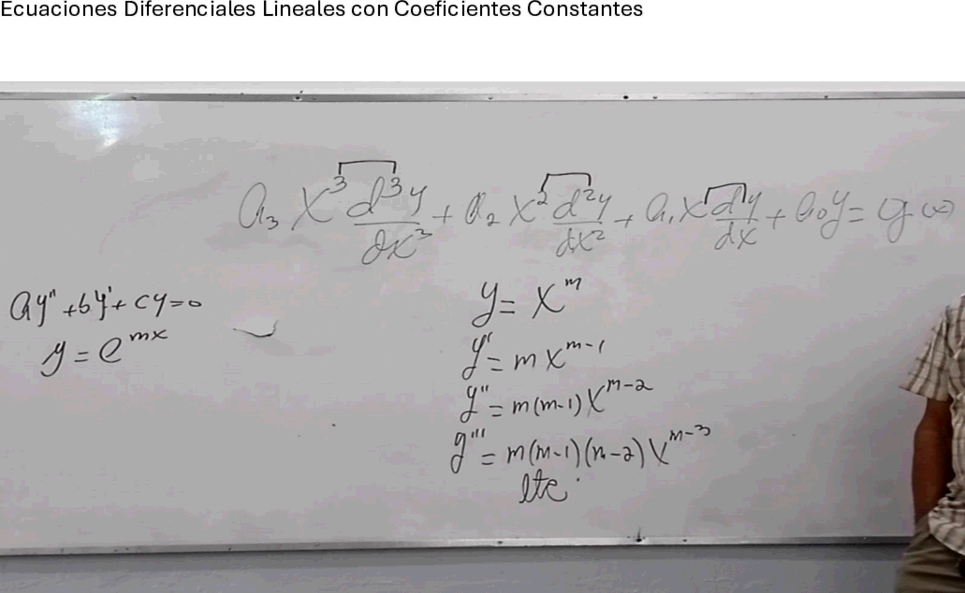 Ecuaciones Diferenciales Lineales con Coeficientes Constantes
a₃ x³ d³y/dx³ + a₂ x² d²y/dx² + a₁ x dy/dx + a₀y = g(x)
ay" + by' + cy = 0
y = e^mx
y = x^m
y' = m x^m-1
y" = m(m-1) x^m-2
y''' = m(m-1)(m-2) x^m-3
etc.